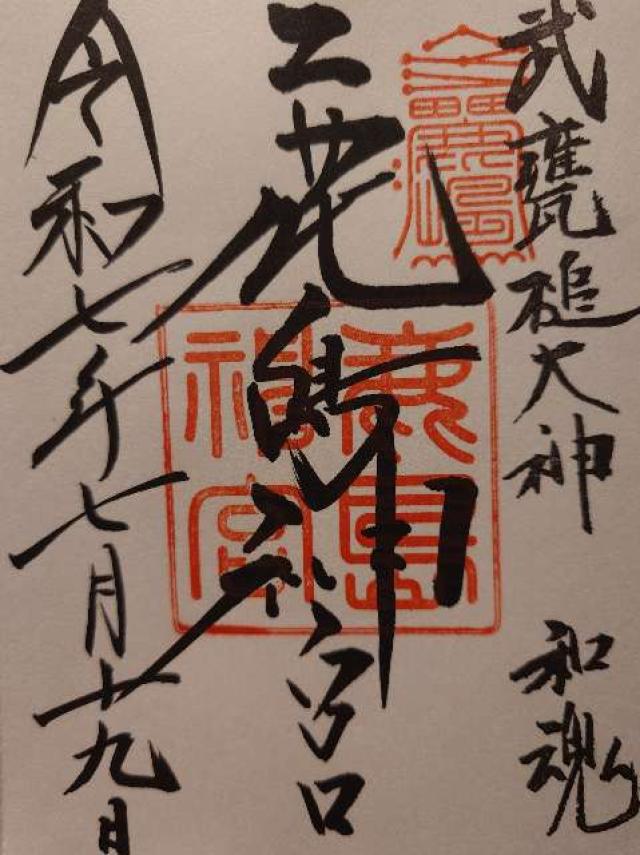 武甕槌大神 和魂
鹿島神宮
鹿島神宮
令和七年七月十九日